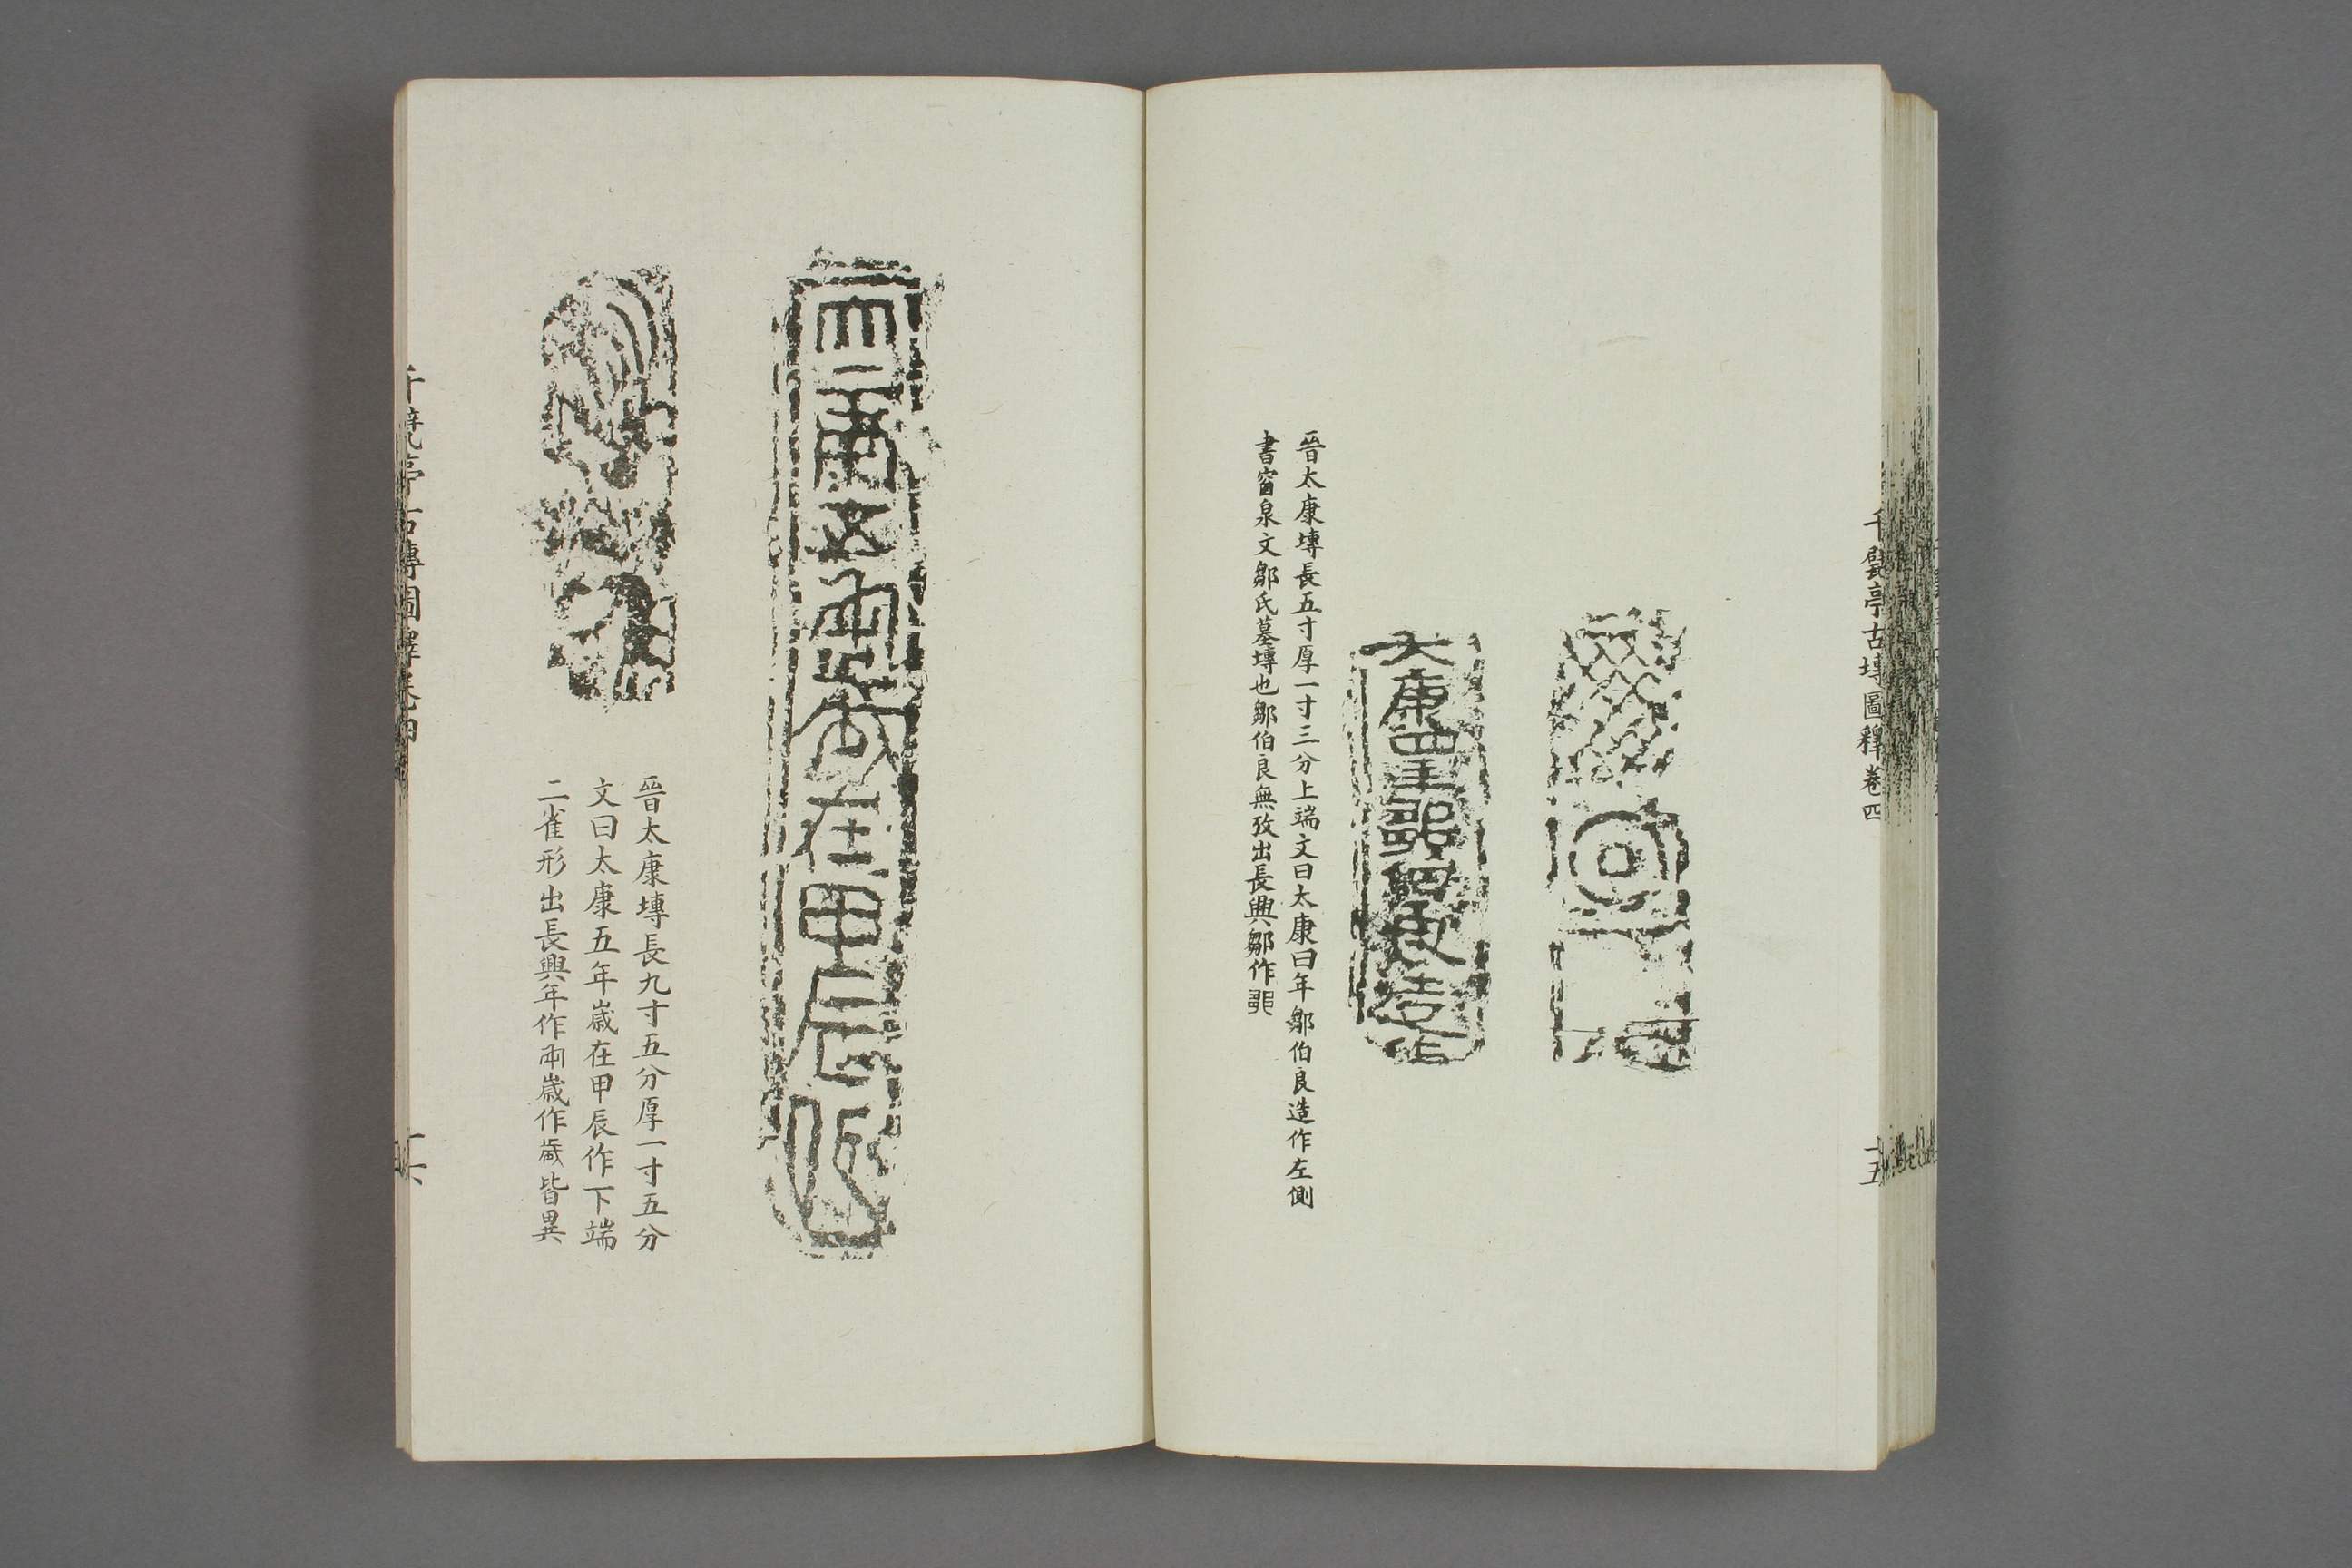 千甓亭古塼圖釋卷四
十五
大康四年鄒伯良造作
晉太康塼長五寸厚一寸三分上端文曰太康曰年鄒伯良造作左側
書窗泉文鄒氏墓塼也鄒伯良無攷出長興鄒作
太康五年歲在甲辰作
晉太康塼長九寸五分厚一寸五分
文曰太康五年歲在甲辰作下端
二雀形出長興年作𠕒歲作𡻕皆異
千甓亭古塼圖釋卷四
十六